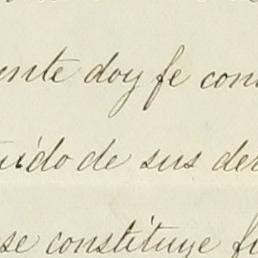 ente doy fe con
uido de sus der
se constituye fi